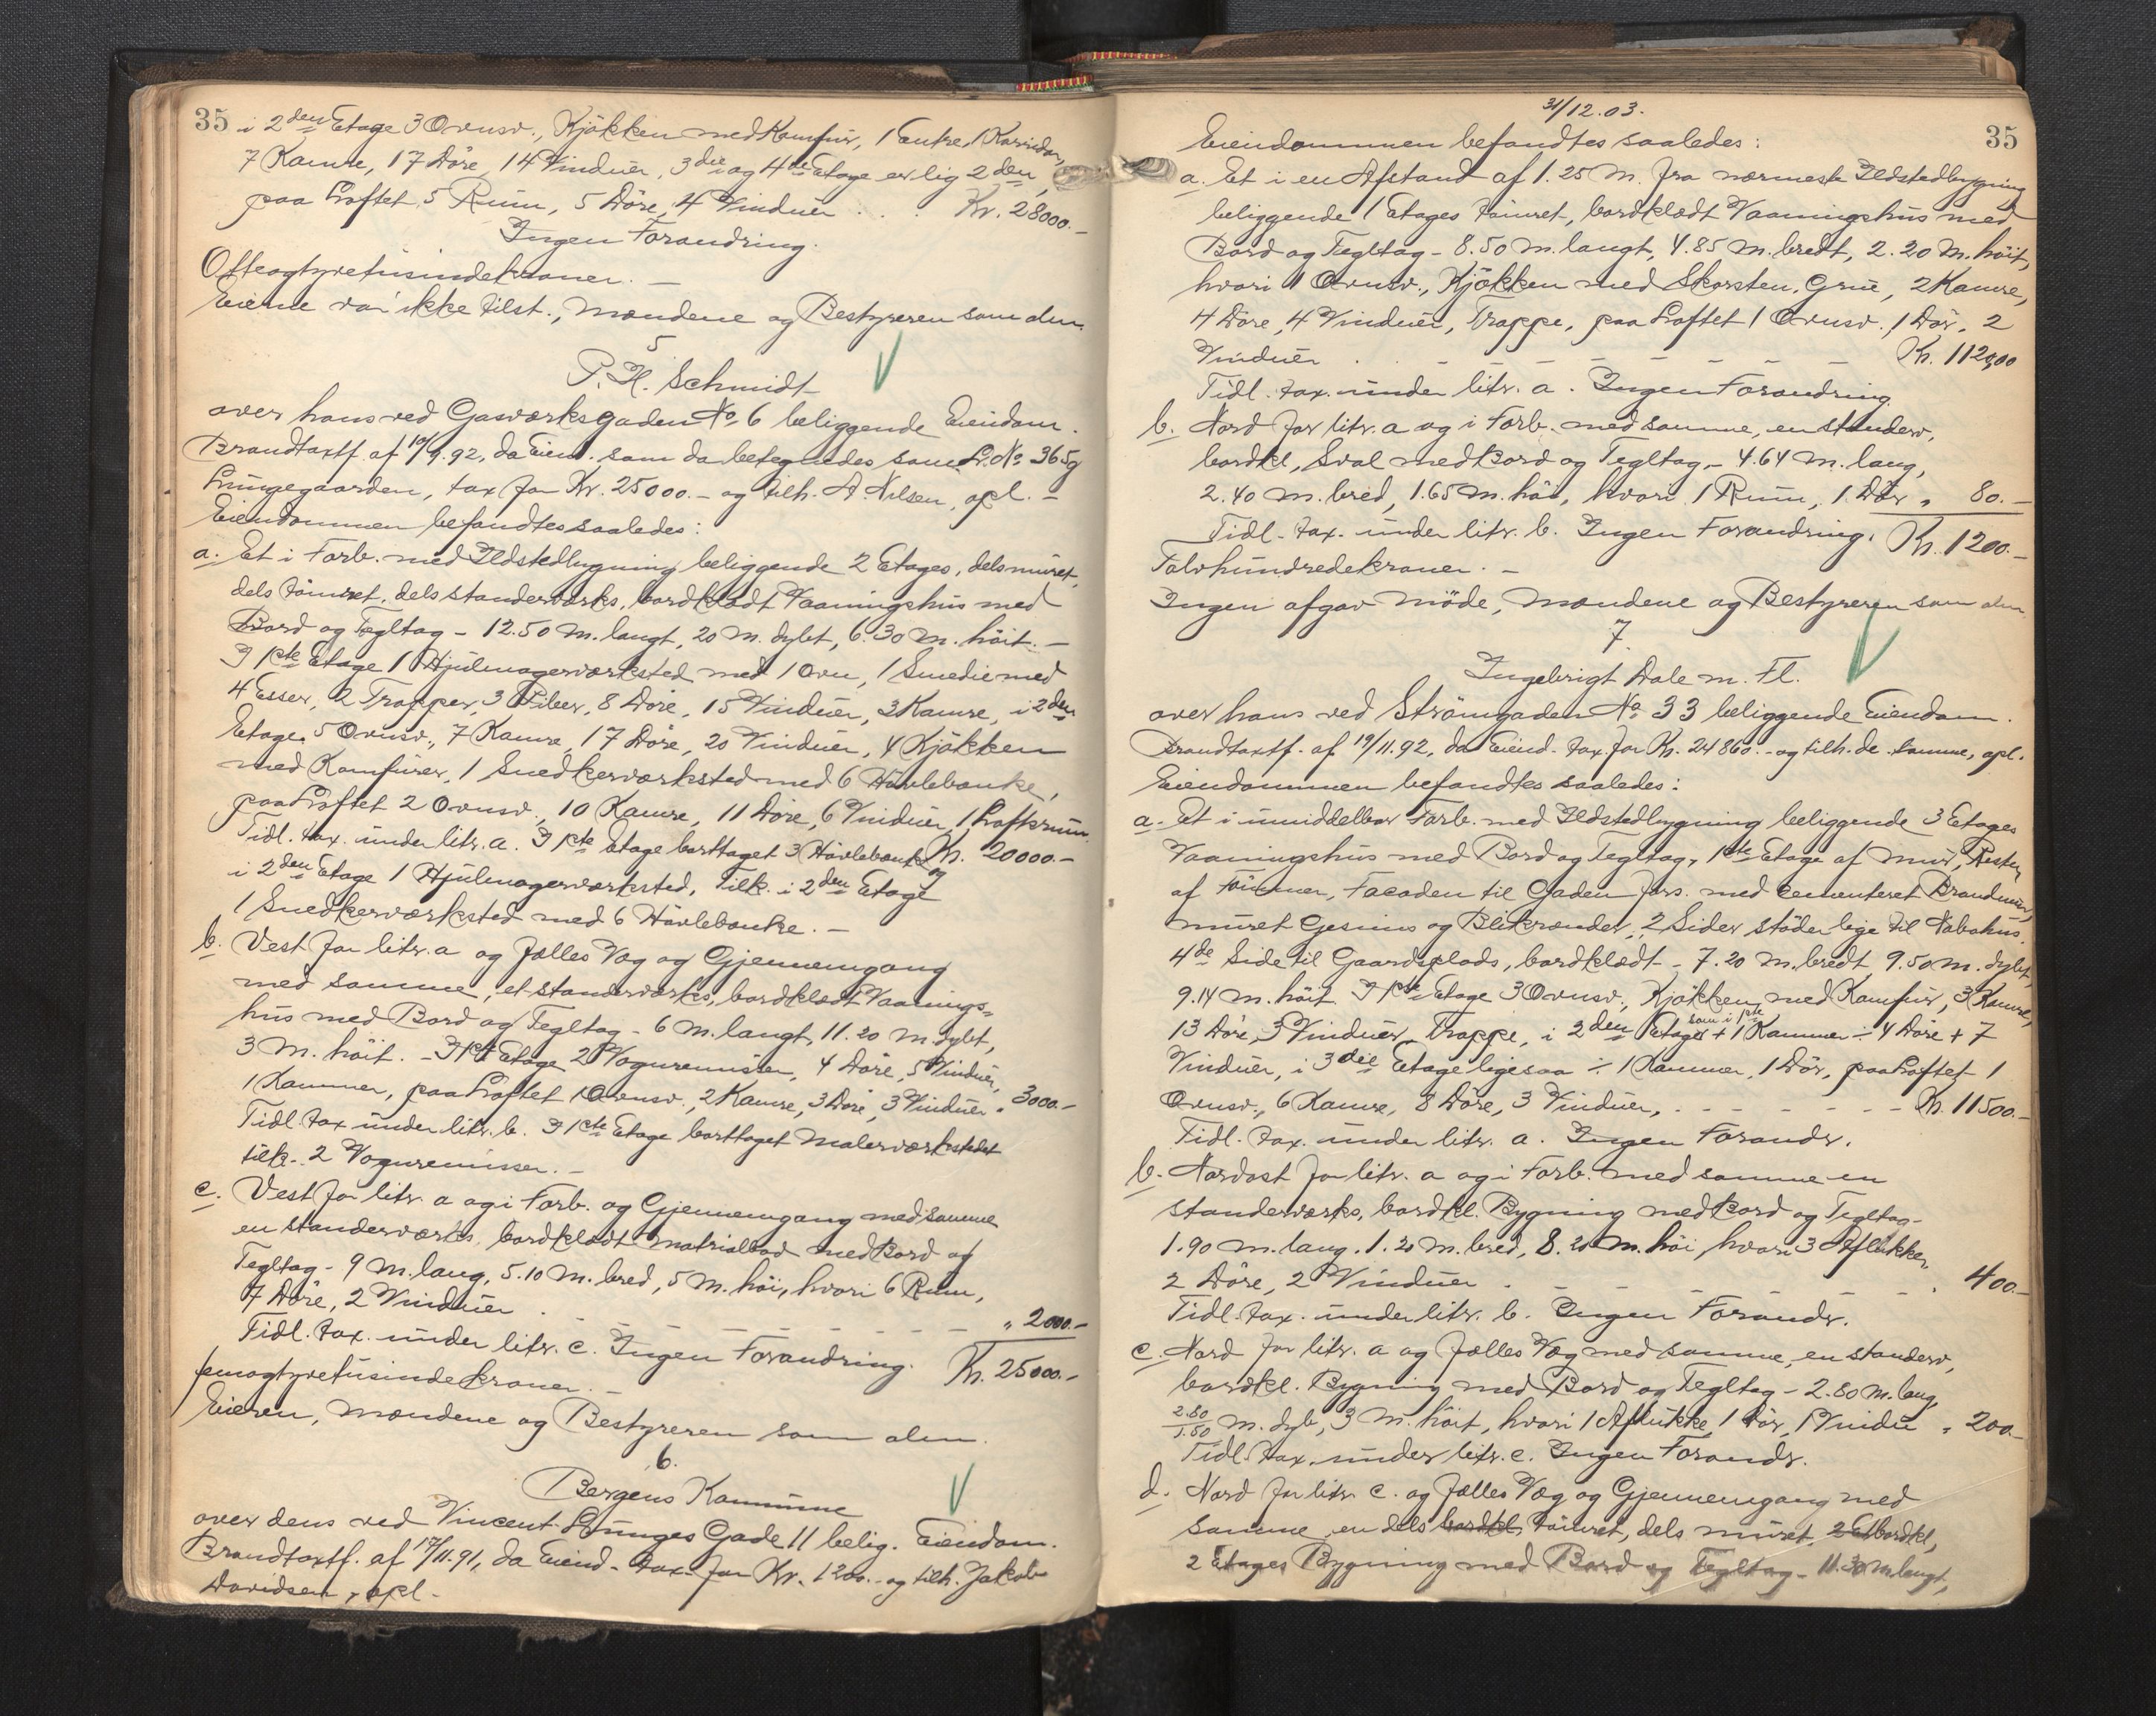 35
i 2den Etage 3 Ovnsv., Kjøkken med Komfur, 1 Entre, 1 Korridor,
7 Kamre, 17 Döre, 14 Vinduer, 3die og 4de Etage er lig 2den,
paa Loftet 5 Rum, 5 Döre, 4 Vinduer . . . Kr. 28000.-
Ingen Forandring.
Otteogtyvetusindekroner. -
Eierne var ikke tilst., Mændene og Bestyreren som alm.
5
P. H. Schmidt
over hans ved Gasværksgaden No 6 beliggende Eiendom.
Brandtaxtf. af 10/9.92, da Eiend. som da betegnedes som Lr. No 365g
Lungegaarden, tax for Kr. 25000.- og tilh. A. Nilsen, opl. -
Eiendommen befandtes saaledes:
a. Et i Forb. med Ildstedbygning beliggende 2 Etages, dels muret,
dels tömret, dels standerværks, bordklædt Vaaningshus med
Bord og Tegltag - 12.50 M. langt, 20 M. dybt, 6.30 M. höit. -
I 1ste Etage 1 Hjulmagerværksted med 1 Ovn, 1 Smedie med
4 Esser, 2 Trapper, 3 Piber, 8 Döre, 15 Vinduer, 3 Kamre, i 2den
Etage 5 Ovnsv., 7 Kamre, 17 Döre, 20 Vinduer, 4 Kjökken
med Komfurer, 1 Snedkerværksted med 6 Hövlebænke,
paa Loftet 2 Ovnsv., 10 Kamre, 11 Döre, 6 Vinduer, 1 Loftsrum
Kr. 20000.-
Tidl. tax. under litr. a. I 1ste Etage borttaget 3 Hövlebænke og
i 2den Etage 1 Hjulmagerværksted, Tilk. i 2den Etage
1 Snedkerværksted med 6 Hövlebænke. -
b. Vest for litr. a og fælles Væg og Gjennemgang
med samme, et standerværks, bordklædt Vaanings-
hus med Bord og Tegltag - 6 M. langt, 11.20 M. dybt,
3 M. höit. - I 1ste Etage 2 Vognremisser, 4 Döre, 5 Vinduer,
1 Kammer, paa Loftet 1 Ovnsv., 2 Kamre, 3 Döre, 3 Vinduer „ 3000.-
Tidl. tax under litr. b. I 1ste Etage borttaget Malerværkstedet
tilk. 2 Vognremisser. -
c. Vest for litr. a og i Forb. og Gjennemgang med samme
en standerværks, bordklædt Matrialbod med Bord og
Tegltag - 9 M. lang, 5.10 M. bred, 5 M. höi, hvori 6 Rum,
7 Döre, 2 Vinduer . - - - - - - - „ 2000.-
Tidl. tax. under litr. c. Ingen Forandring. Kr. 25000.-
femogtyvetusindekroner. -
Eieren, Mændene og Bestyreren som alm.
6.
Bergens Kommune
over dens ved Vincent Lunges Gade 11 belig. Eiendom.
Brandtaxtf. af 17/11.91, da Eiend. tax for Kr. 1200.- og tilh. Jakob
Davidsen, opl. -
31/12.03.
35
Eiendommen befandtes saaledes:
a. Et i en Afstand af 1.25 M. fra nærmeste Ildstedbygning
beliggende 1 Etages tömret, bordklædt Vaaningshus med
Bord og Tegltag - 8.50 M. langt, 4.85 M. bredt, 2.20 M. höit,
hvori 1 Ovnsv., Kjökken med Skorsten, Grue, 2 Kamre,
4 Döre, 4 Vinduer, Trappe, paa Loftet 1 Ovnsv. 1 Dör, 2
Vinduer . . - - - - - - Kr. 1120,00
Tidl. tax. under litr. a. Ingen Forandring.
b. Nord for litr. a og i Forb. med samme, en standerv,
bordkl, Sval med Bord og Tegltag, - 4.64 M. lang,
2.40 M. bred, 1.65 M. höi, hvori 1 Rum, 1 Dör „ 80.-
Tidl. tax. under litr. b. Ingen Forandring. Kr. 1200.-
Tolvhundredekroner. -
Ingen afgav Möde, Mændene og Bestyreren som alm.
7.
Ingebrigt Dale m. Fl.
over hans ved Strömgaden No 33 beliggende Eiendom.
Brandtaxtf. af 19/11.92, da Eiend. tax. for Kr. 24860.- og tilh. de samme, opl.
Eiendommen befandtes saaledes:
a. Et i umiddelbar Forb. med Ildstedbygning beliggende 3 Etages
Vaaningshus med Bord og Tegltag, 1ste Etage af Mur, Resten
af Tömmer, Facaden til Gaden fors. med cementeret Brandmur,
muret Gesims og Blikrender, 2 Sider stöder lige til Nabohus.
4de Side til Gaardsplads, bordklædt - 7.20 M. bredt, 9.50 M. dybt,
9.14 M. höit. I 1ste Etage 3 Ovnsv., Kjökken med Komfur, 3 Kamre,
13 Döre, 3 Vinduer, Trappe, i 2den Etage som i 1ste + 1 Kammer ÷ 4 Döre + 7
Vinduer, i 3die Etage ligesaa ÷ 1 Kammer, 1 Dör, paa Loftet 1
Ovnsv., 6 Kamre, 8 Döre, 3 Vinduer, . - - - - - - - Kr. 11500.-
Tidl. tax. under litr. a. Ingen Forandr.
b. Nordost for litr. a og i Forb. med samme en
standerværks, bordkl. Bygning med Bord og Tegltag -
1.90 M. lang, 1.20 M. bred, 8.20 M. höi, hvori 3 Aflukker,
2 Döre, 2 Vinduer . - - - - - - . „ 400.-
Tidl. tax. under litr. b. Ingen Forandr.
c. Nord for litr. a og fælles Væg med samme, en standerv,
bordkl. Bygning med Bord og Tegltag - 2.80 M. lang,
2.80/1.50 M. dyb, 3 M. höit, hvori 1 Aflukke, 1 Dör, 1 Vindu „ 200.-
Tidl. tax. under litr. c. Ingen Forandr.
d. Nord for litr. c. og fælles Væg og Gjennemgang med
samme en dels bordkl, tömret, dels muret, 2 Et bordkl,
2 Etages Bygning med Bord og Tegltag - 11.30 M. langt,